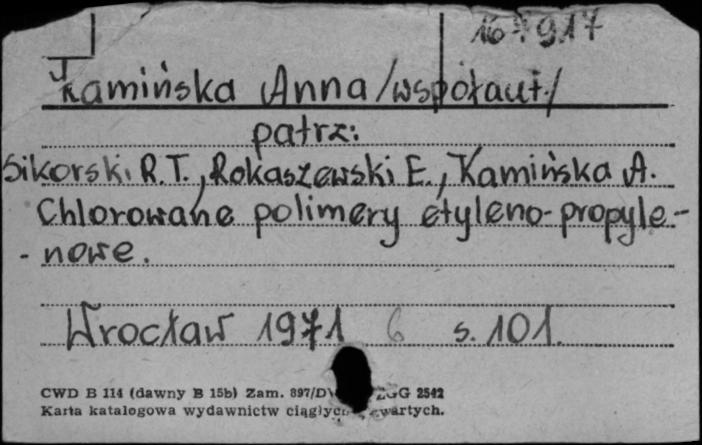 167917
Kamińska Anna /współaut./
patrz:
Sikorski R.T., Rokaszewski E., Kamińska A.
Chlorowane polimery etyleno-propyle-
-nowe.
Wrocław 1971 6 s. 101.
CWD B 114 (dawny B 15b) Zam. 897/D GG 2542
Karta katalogowa wydawnictw ciągłych